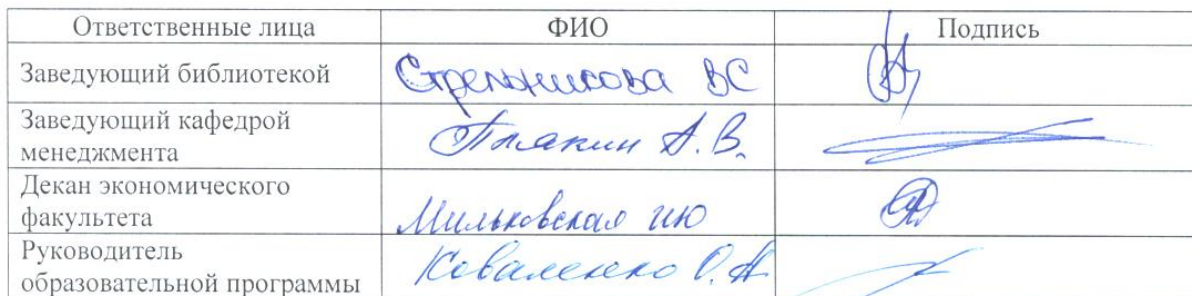 Ответственные лица ФИО Подпись
Заведующий библиотекой Стрельникова ВС
Заведующий кафедрой
менеджмента Плякин А.В.
Декан экономического
факультета Мильковская ИЮ
Руководитель
образовательной программы Коваленко О.А